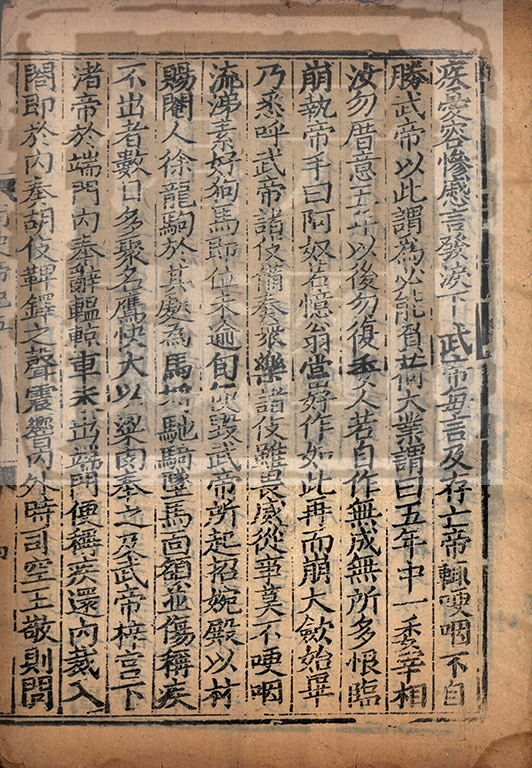 疾憂容慘慼言發淚下武帝每言及存亡帝輒哽咽不自
勝武帝以此謂為必能負荷大業謂曰五年中一委宰相
汝勿厝意五年以後勿復委人若自作無成無所多恨臨
崩執帝手曰阿奴若憶翁當好作如此再而崩大歛始畢
乃悉呼武帝諸伎備奏衆樂諸伎雖畏威從事莫不哽咽
流涕素好狗馬即位未逾旬便毀武帝所起招婉殿以材
賜閹人徐龍駒於其處為馬埒馳騎墜馬面額並傷稱疾
不出者數日多聚名鷹快犬以梁肉奉之及武帝梓宮下
渚帝於端門內奉辭轀輬車未出端門便稱疾還內裁入
閤即於內奏胡伎鞞鐸之聲震響內外時司空王敬則問